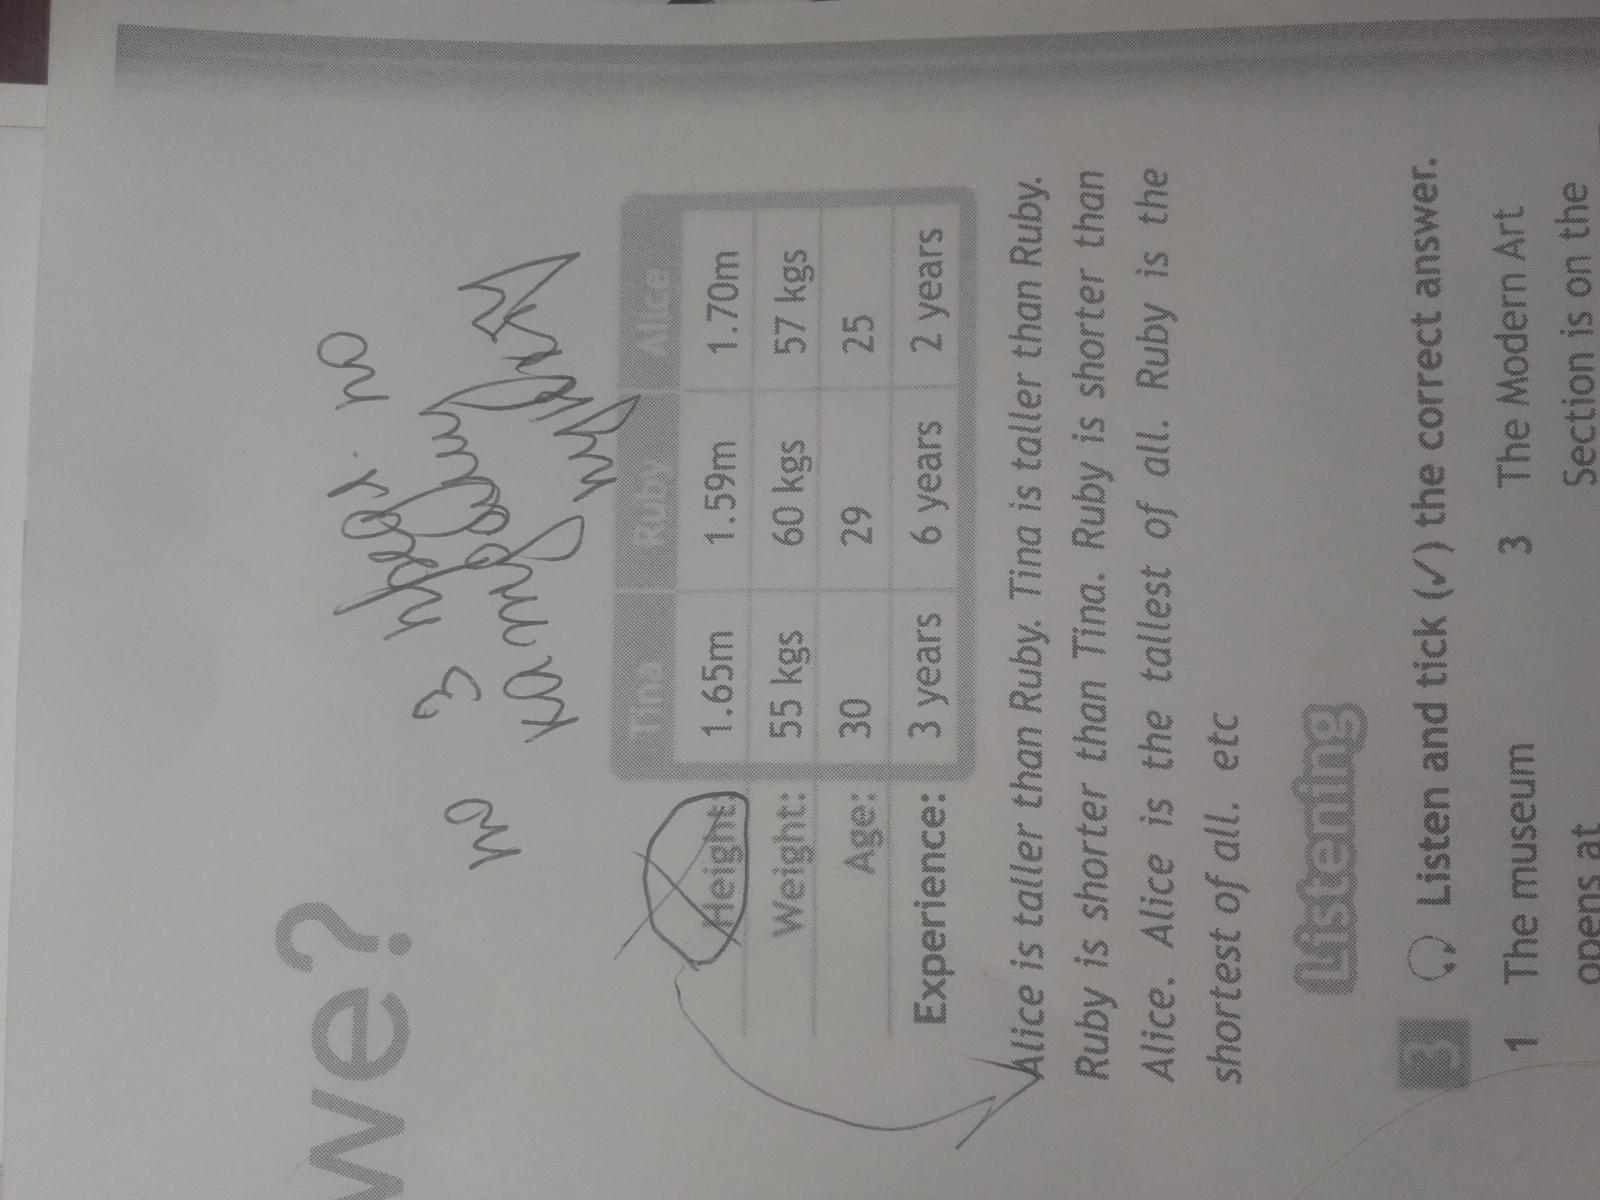 we?
по 3 предл. по
каждому
Tina Ruby Alice
Height: 1.65m 1.59m 1.70m
Weight: 55 kgs 60 kgs 57 kgs
Age: 30 29 25
Experience: 3 years 6 years 2 years
Alice is taller than Ruby. Tina is taller than Ruby.
Ruby is shorter than Tina. Ruby is shorter than
Alice. Alice is the tallest of all. Ruby is the
shortest of all. etc
Listening
3 Listen and tick (✓) the correct answer.
1 The museum 3 The Modern Art
opens at Section is on the